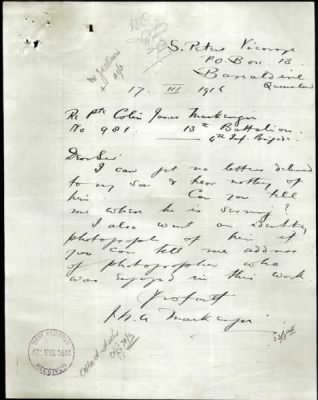 S. Peters Vicarage
P.O. Box 13
Barcaldine
Queensland
17. III 1916
Re Pte Colin James Mackenzie
No 981. 15th Battalion
4th Inf. Brigade
Dear Sir
I can get no letters delivered
to my son & hear nothing of
him. Can you tell
me where he is serving?
I also want an identity
photograph of him if
you can tell me address
of photographer who
was engaged in this work
Yrs faithf
Mackenzie